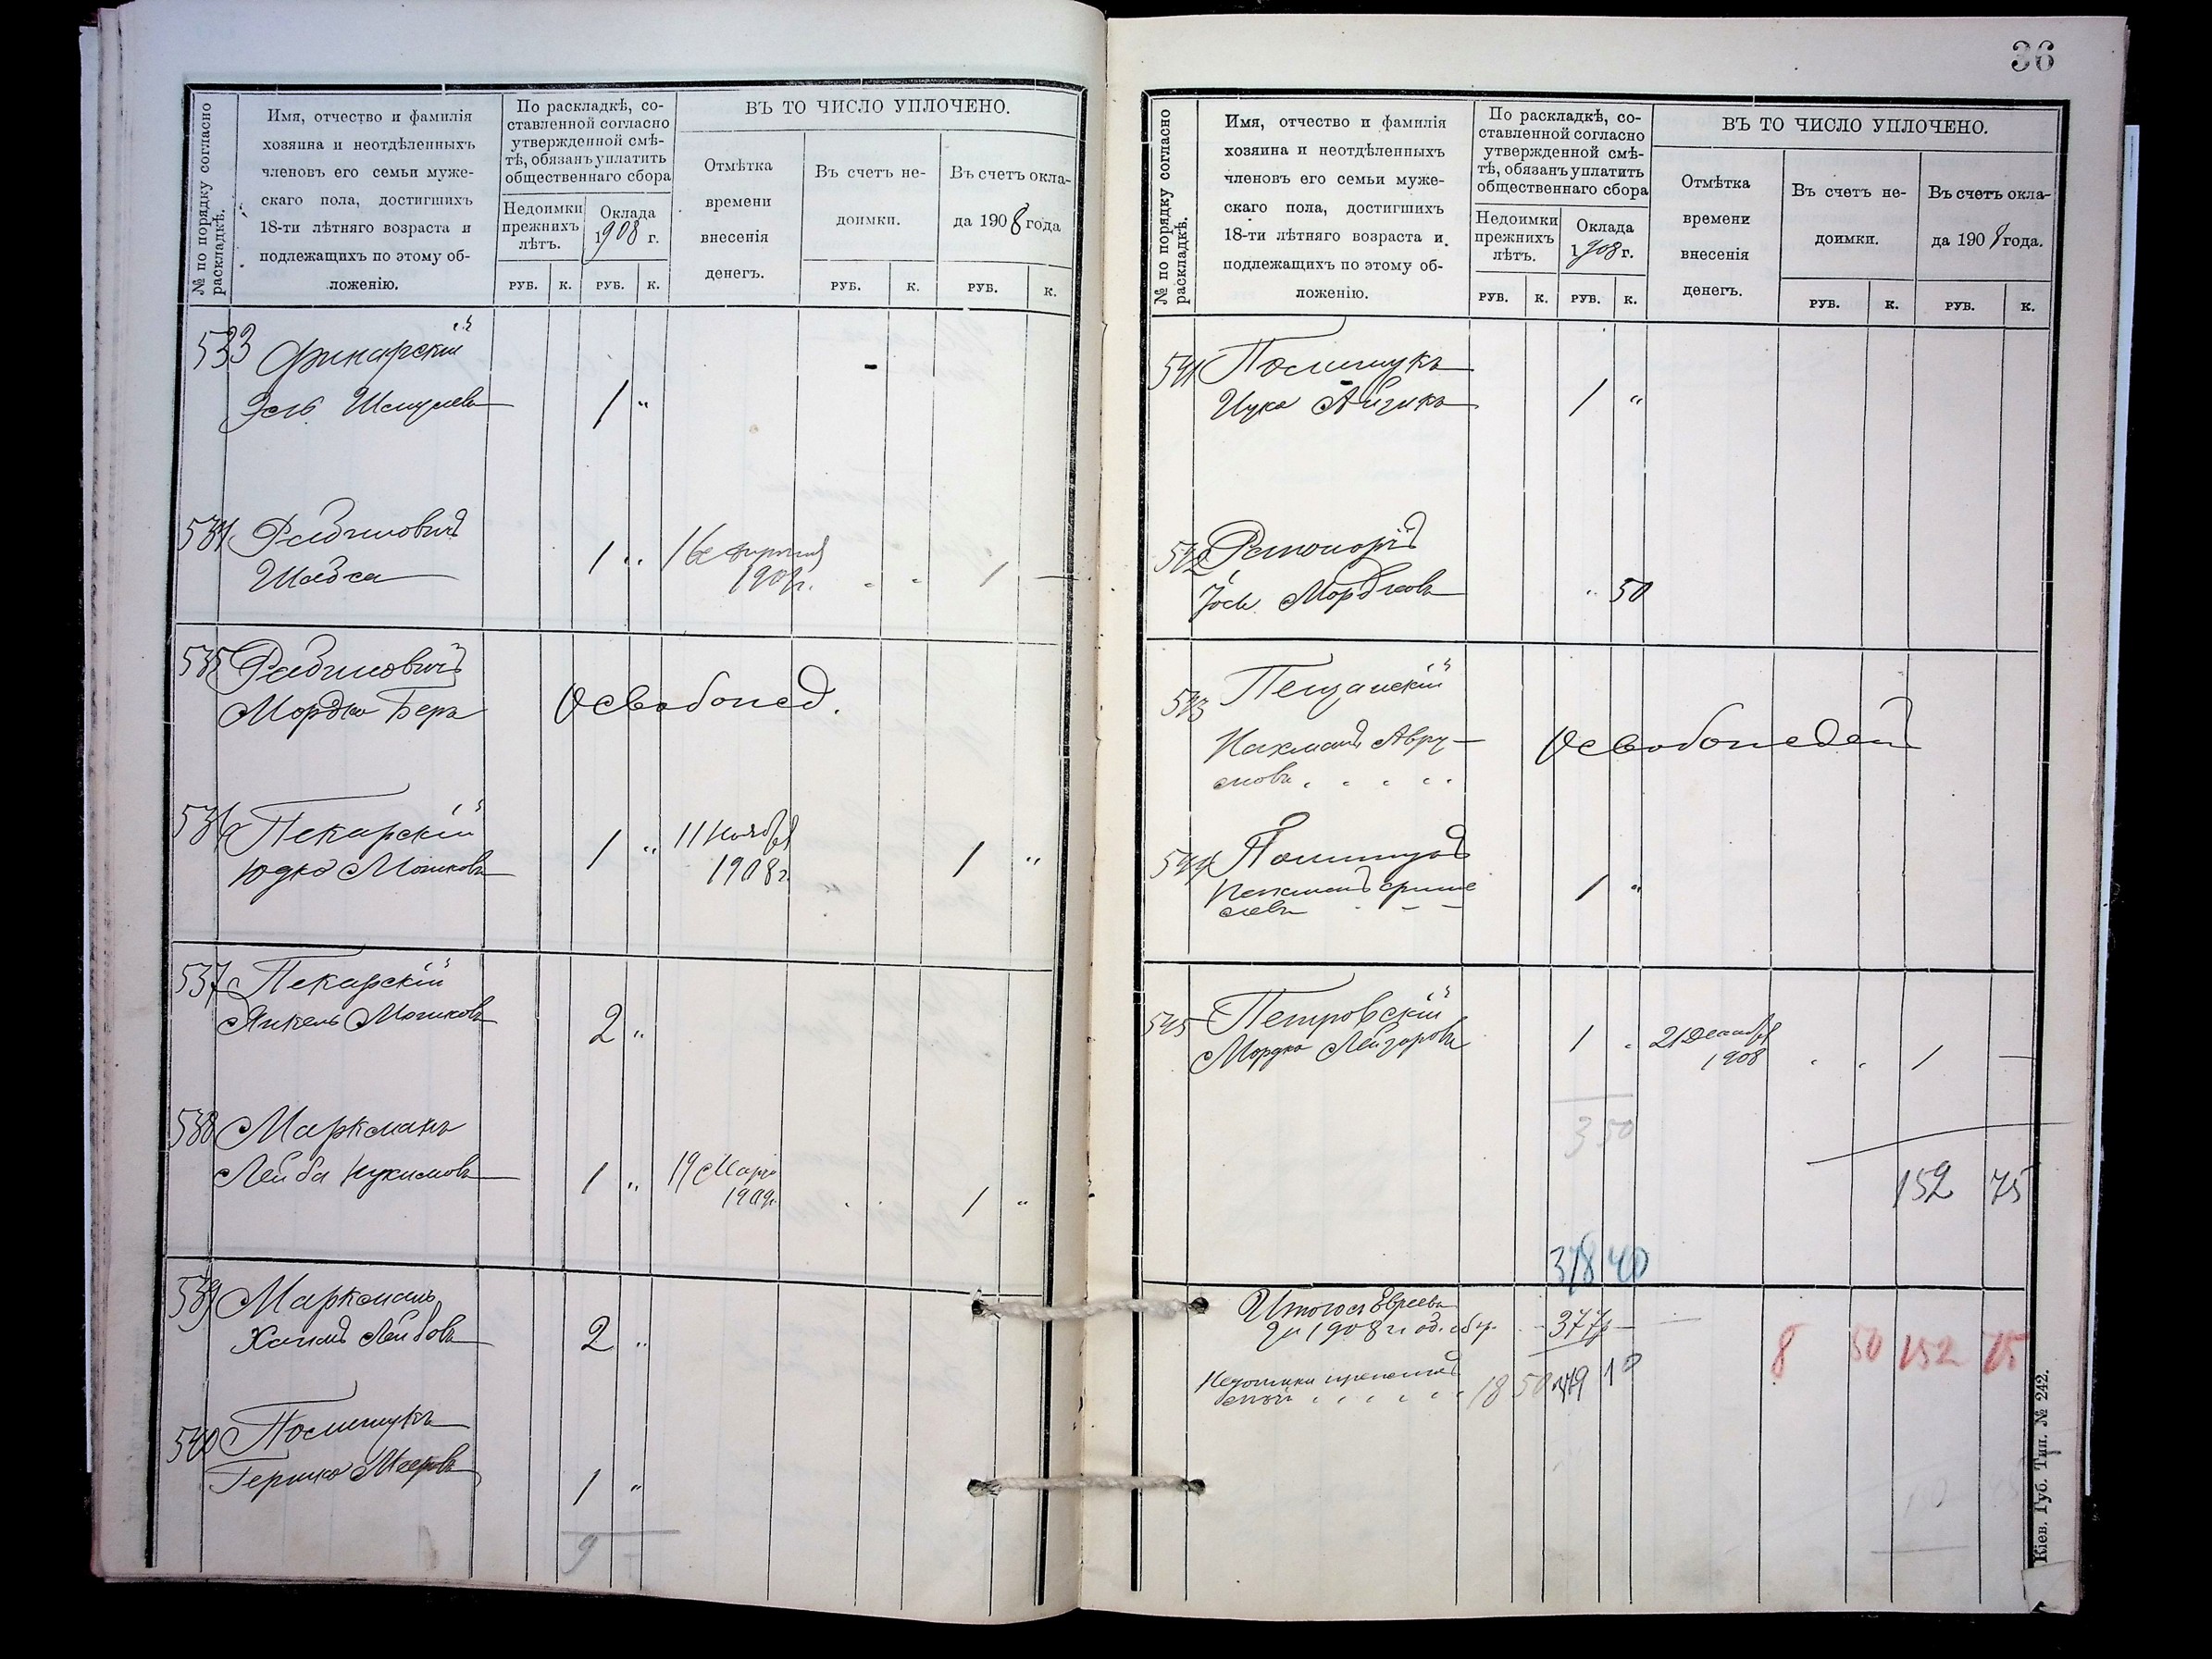 36
№ по порядку согласно раскладкѣ.
Имя, отчество и фамилія
хозяина и неотдѣленныхъ
членовъ его семьи муже-
скаго пола, достигшихъ
18-ти лѣтняго возраста и
подлежащихъ по этому об-
ложенію.
По раскладкѣ, со-
ставленной согласно
утвержденной смѣ-
тѣ, обязанъ уплатить
общественнаго сбора
Недоимки
прежнихъ
лѣтъ.
Оклада
1908 г.
РУБ. К. РУБ. К.
ВЪ ТО ЧИСЛО УПЛОЧЕНО.
Отмѣтка
времени
внесенія
денегъ.
Въ счетъ не-
доимки.
РУБ. К.
Въ счетъ окла-
да 1908 года
РУБ. К.
533 Финарскій
Шмулевъ 1 "
534 Рабиновичъ
1 "
1909г. " " 1 —
535 Рабиновичъ
Мордко Беръ Освобожд.
536 Пекарскій
1 " 11 Ноября
Юдко Мошковъ 1908г. 1 "
537 Пекарскій
Янкель Мошковъ 2 "
538 Маркманъ
Лейба Нухимовъ 1 " 19 Марта
1909г. 1 "
539 Маркманъ
Хаимъ Лейбовъ 2 "
540 Полищукъ
Гершко Мееровъ 1 "
9 —
№ по порядку согласно раскладкѣ.
Имя, отчество и фамилія
хозяина и неотдѣленныхъ
членовъ его семьи муже-
скаго пола, достигшихъ
18-ти лѣтняго возраста и
подлежащихъ по этому об-
ложенію.
По раскладкѣ, со-
ставленной согласно
утвержденной смѣ-
тѣ, обязанъ уплатить
общественнаго сбора
Недоимки
прежнихъ
лѣтъ.
Оклада
1908 г.
РУБ. К. РУБ. К.
ВЪ ТО ЧИСЛО УПЛОЧЕНО.
Отмѣтка
времени
внесенія
денегъ.
Въ счетъ не-
доимки.
РУБ. К.
Въ счетъ окла-
да 1908 года.
РУБ. К.
541 Полищукъ
Айзикъ 1 "
542
Мордковъ " 50
543 Песчанскій
Нахманъ Авру-
мовъ Освобожденъ
544
1 "
545 Петровскій
Мордко Лейзоровъ 1 " 21 Декабря
1908 " " 1 —
3 50
152 75
378 40
Итого съ Евреевъ
за 1908 г. 377р —
8 50 152 75
Недоимки
18 50 10
Кіев. Губ. Тип. № 242.